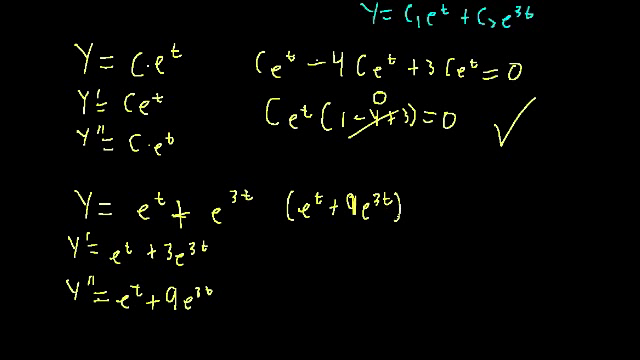 Y = C₁e^t + C₂e^3t
Y = C·e^t
Y' = Ce^t
Y'' = C·e^t
Ce^t - 4Ce^t + 3Ce^t = 0
Ce^t (1 - 4 + 3) = 0 ✓
0
Y = e^t + e^3t (e^t + 9e^3t)
Y' = e^t + 3e^3t
Y'' = e^t + 9e^3t